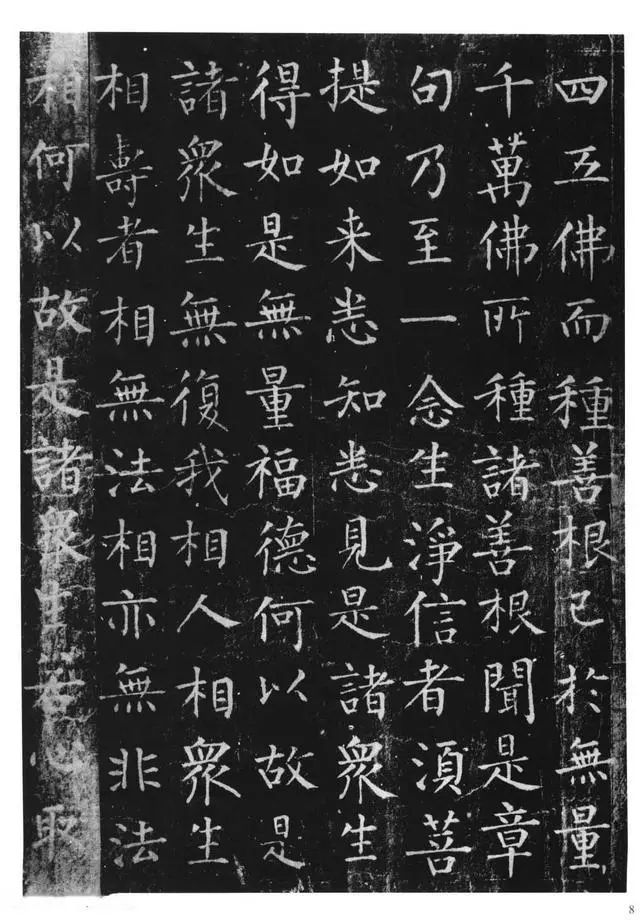 四五佛而種善根已於無量
千萬佛所種諸善根聞是章
句乃至一念生淨信者湏菩
提如来悉知悉見是諸衆生
得如是無量福德何以故是
諸衆生無復我相人相衆生
相壽者相無法相亦無非法
相何以故是諸衆生若心取
8